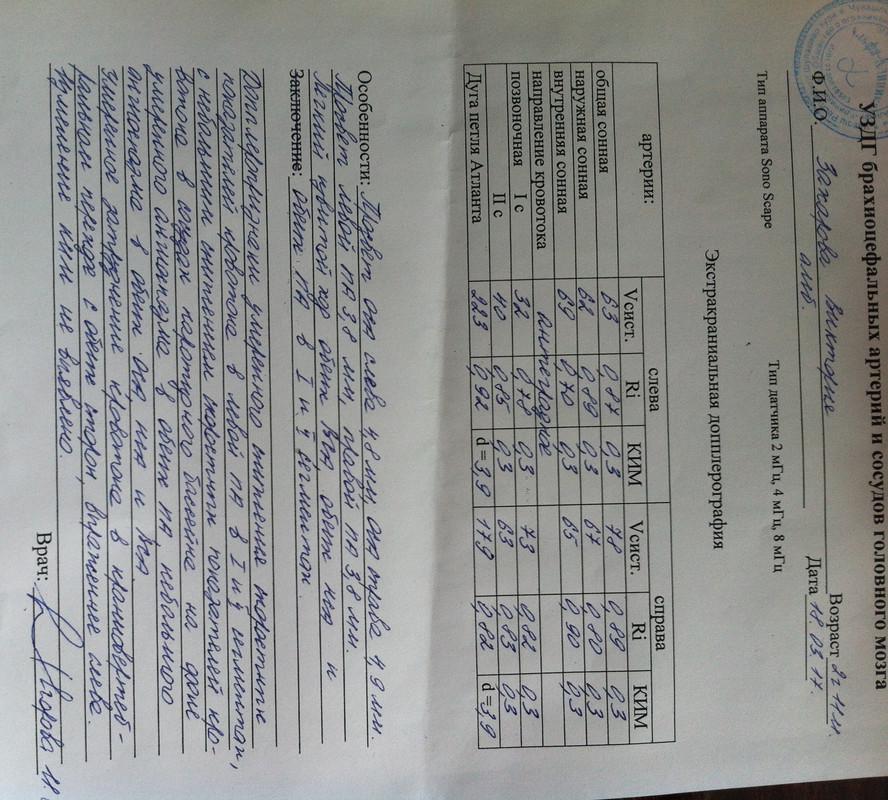 УЗДГ брахиоцефальных артерий и сосудов головного мозга
Ф.И.О Захарова Виктория Возраст 2г 11м.
амб. Дата 18.03.17.
Тип аппарата Sono Scape Тип датчика 2 мГц, 4 мГц, 8 мГц
Экстракраниальная допплерография
артерии: слева справа
Vсист. Ri КИМ Vсист. Ri КИМ
общая сонная 63 0,87 0,3 78 0,89 0,3
наружная сонная 62 0,89 0,3 67 0,80 0,3
внутренняя сонная 69 0,70 0,3 65 0,90 0,3
направление кровотока антеградное
позвоночная I с 32 0,78 0,3 73 0,82 0,3
II с 40 0,85 0,3 63 0,83 0,3
Дуга петля Атланта 223 0,92 d = 3,9 179 0,82 d = 3,9
Особенности: Диаметр ОСА слева 4,8 мм, ОСА справа 4,9 мм.
Диаметр левой ПА 3,8 мм, правой ПА 3,8 мм.
Легкий извитой ход обеих ВСА, обеих НСА и
Заключение: обеих ПА в I и II сегментах.
Допплерпризнаки умеренного снижения скоростных
показателей кровотока в левой ПА в I и II сегментах,
с небольшим снижением скоростных показателей кро-
вотока в сосудах каротидного бассейна на фоне
умеренного ангиоспазма в обеих ПА, небольшого
ангиоспазма в обеих ОСА, НСА и ВСА.
Умеренное затруднение кровотока в краниовертеб-
ральном переходе с обеих сторон, выраженнее слева.
Утолщение КИМ не выявлено.
Врач: